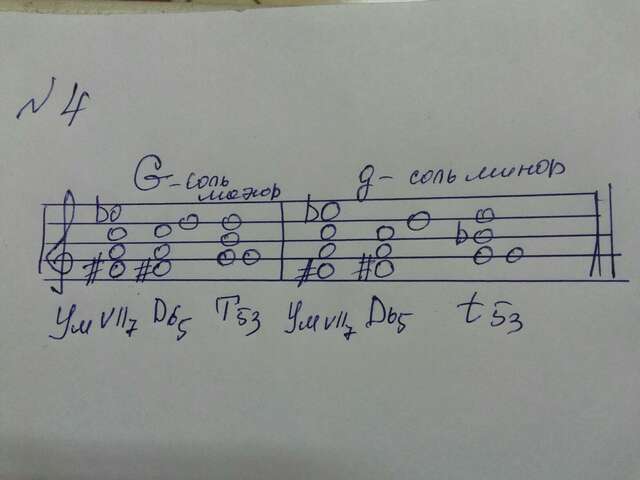 N 4
G - соль мажор g - соль минор
Ум VII7 D65 T53 Ум VII7 D65 t 53